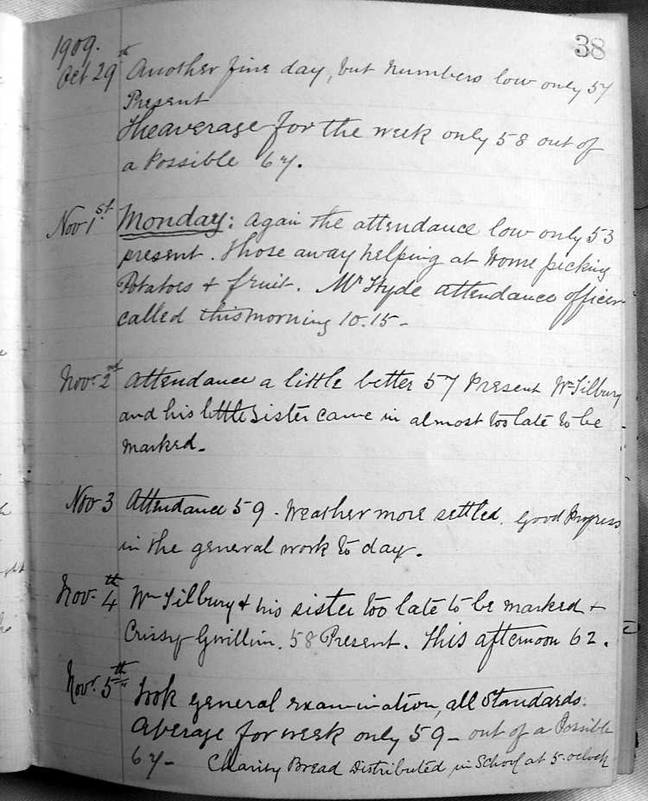 38
1909.
Oct 29th Another fine day, but numbers low only 57
Present
The average for the week only 58 out of
a Possible 67.
Nov 1st. Monday: Again the attendance low only 53
present. Those away helping at home picking
Potatoes + fruit. Mr Hyde attendance officer
called this morning 10.15 -
Nov. 2nd Attendance a little better 57 Present Wm Tilbury
and his little sister came in almost too late to be
marked.
Nov 3 Attendance 59. Weather more settled. Good Progress
in the general work to day.
Nov. 4th Wm Tilbury & his sister too late to be marked +
Crissy Gwillim. 58 Present. This afternoon 62.
Novr. 5th Took general examination, all Standards.
Average for week only 59 - out of a Possible
67 - Charity Bread Distributed in School at 5. oclock